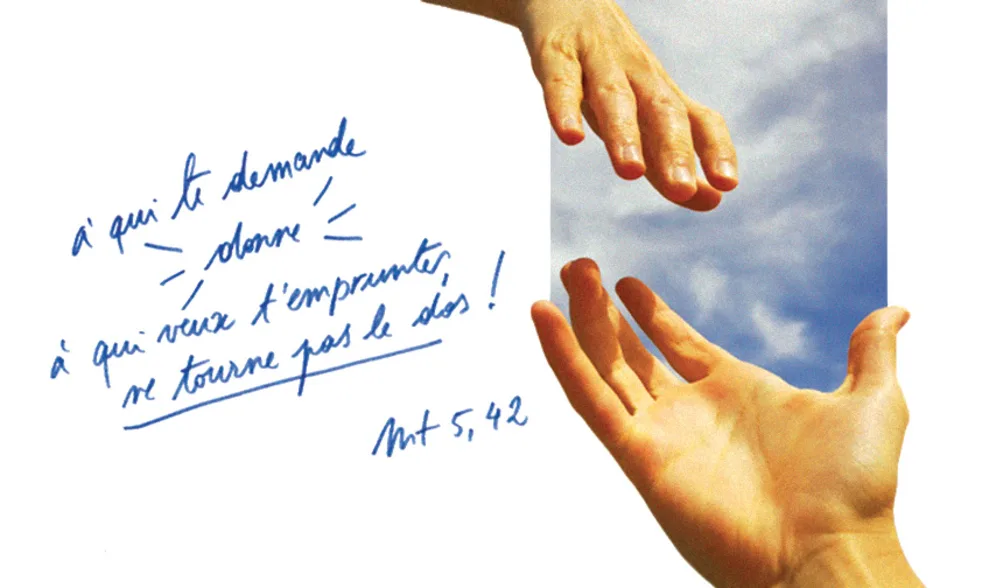 à qui te demande
donne
à qui veux t'emprunter,
ne tourne pas le dos !
Mt 5, 42